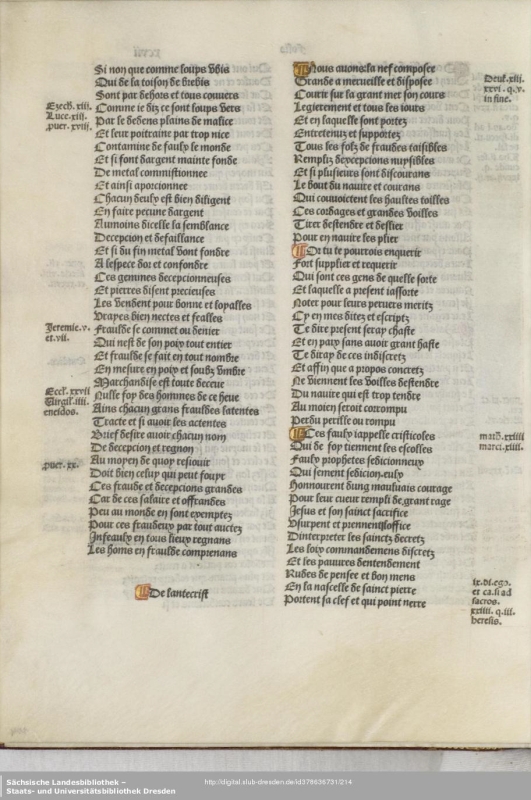 Si non que comme loups vbis
Qui de la toison de brebis
Sont par dehors et tous couuers
Comme ie diz ce sont loups vers
Par le dedens plains de malice
Et leur poitraine par trop nice
Contamine de faulx le monde
Et si font dargent mainte fonde
De metal commistionnee
Et ainsi aporcionnee
Chacun deulx est bien diligent
En faire pecune dargent
Aumoins dicelle la semblance
Decepcion et defaillance
Et si du fin metal vont fondre
A lespece dor et confondre
Ces gemmes decepcionneuses
Et pierres disent precieuses
Les vendent pour bonne et loyalles
Vrayes bien nectes et fealles
Fraulde se commet ou denier
Qui nest de son poix tout entier
Et fraulde se fait en tout nombre
En mesure en poix et soubz vmbre
Marchandise est toute deceue
Nulle foy des hommes de ce heue
Ains chacun grans frauldes latentes
Tracte et si auoir les actentes
Brief desire auoir chacun nom
De decepcion et regnon
Au moyen de quoy resiouir
Doit bien celuy qui peut fouyr
Ces fraude et decepcions grandes
Car de ces salaire et offrandes
Peu au monde en sont exemptez
Pour ces fraudeux par tout auctez
Infeaulx en tous lieux regnans
Les homs en fraulde comprenans
De lantecrist
Ezech. xiij.
Luce. xiij.
puer. xviij.
Jeremie. v.
et. vii.
Eccl. xxvii
Virgil. iiij.
eneidos.
puer. xx.
Nous auons la nef composee
Grande a merueille et disposee
Courir sur la grant mer son cours
Legierement et tous les iours
Et en laquelle sont portez
Entretenuz et supportez
Tous les folz de fraudes taisibles
Rempliz dexcepcions nuysibles
Et si plusieurs sont discourans
Le bout du nauire et courans
Qui couuoictent les haultes toilles
Ces cordages et grandes voilles
Tirer destendre et deslier
Pour en nauire les plier
Or tu te pourrois enquerir
Fort supplier et requerir
Qui sont ces gens de quelle sorte
Et laquelle a present iassorte
Noter pour leurs peruers meritz
Cy en mes ditez et escriptz
Te dire present seray chaste
Et en paix sans auoir grant haste
Te diray de ces indiscretz
Et affin que a propos concretz
Ne viennent les voilles destendre
Du nauire qui est trop tendre
Au moien seroit corrompu
Perdu perille ou rompu
Ces faulx iappelle cristicoles
Qui de foy tiennent les escolles
Faulx prophetes sedicionneux
Qui sement sedicion eulx
Honnourent dung mauluais courage
Pour leur cueur rempli de grant rage
Jesus et son sainct sacrifice
Vsurpent et prennent loffice
Dinterpreter les sainctz decretz
Les loix commandemens discretz
Et les pauures dentendement
Rudes de pensee et bon mens
En la nascelle de sainct pierre
Portent sa clef et qui point nerre
Deut. xiij.
xxvi. q. v.
in fine.
math. xxiiii
marci. xiiii.
ix. di. ego.
et ca. si ad
sacros.
xxiiii. q. iii.
heresis.
Sächsische Landesbibliothek –
Staats- und Universitätsbibliothek Dresden
http://digital.slub-dresden.de/id378636731/214